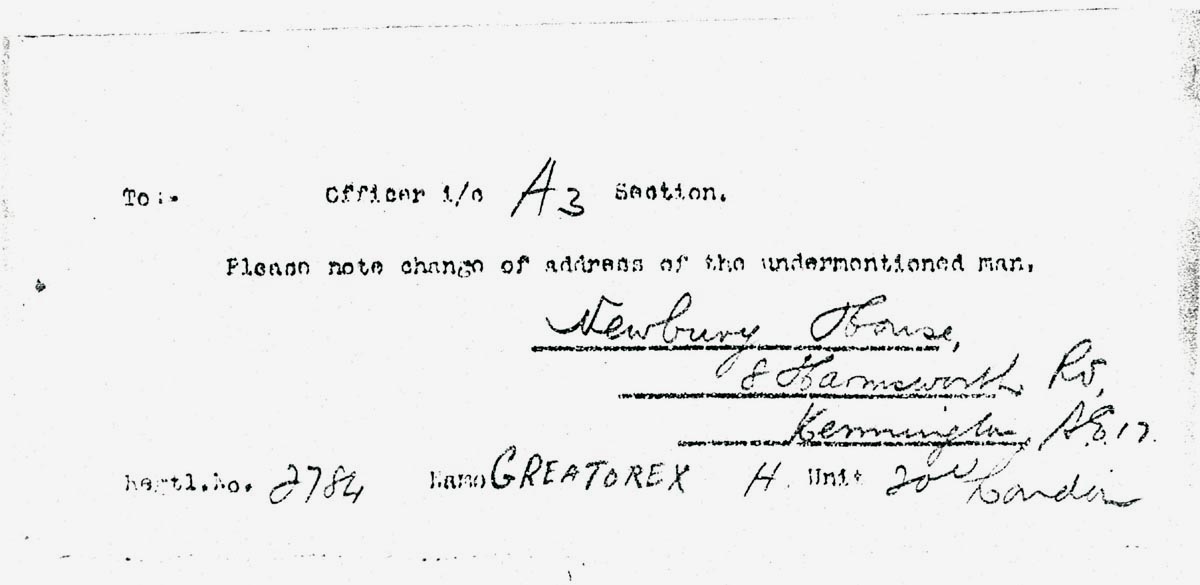 To:- Officer i/c A3 Section.
Please note change of address of the undermentioned man.
Newbury House,
8 Harmsworth Rd,
Kennington, S.E.17.
Regtl.No. 2784 Name GREATOREX H. Unit 20th London